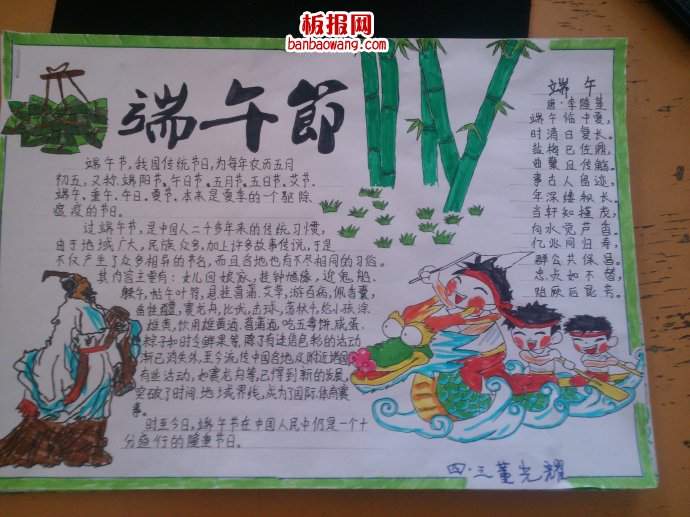 板报网
banbaowang.com
端午節
端午节，我国传统节日，为每年农历五月
初五，又称端阳节、午日节、五月节、五日节、艾节、
端午、重午、午日、夏节。本来是夏季的一个驱除
瘟疫的节日。
过端午节，是中国人二千多年来的传统习惯，
由于地域广大，民族众多，加上许多故事传说，于是
不仅产生了众多相异的节名，而且各地也有着不尽相同的习俗。
其内容主要有：女儿回娘家，挂钟馗像，迎鬼船、
躲午，帖午叶符，悬挂菖蒲、艾草，游百病，佩香囊，
备牲醴，赛龙舟，比武，击球，荡秋千，给小孩涂
雄黄，饮用雄黄酒、菖蒲酒，吃五毒饼、咸蛋、
粽子和时令鲜果等，除了有迷信色彩的活动
渐已消失外，至今流传中国各地及附近诸国。
有些活动，如赛龙舟等，已得到新的发展，
突破了时间、地域界线，成为了国际体育赛
事。
时至今日，端午节在中国人民中仍是一个十
分盛行的隆重节日。
端 午
唐·李隆基
端午临中夏，
时清日复长。
盐梅已佐鼎，
曲糵且传觞。
事古人留迹，
年深缕积长。
当轩知槿茂，
向水觉芦香。
亿兆同归寿，
群公共保昌。
忠贞如不替，
贻厥后昆芳。
四·三董光耀